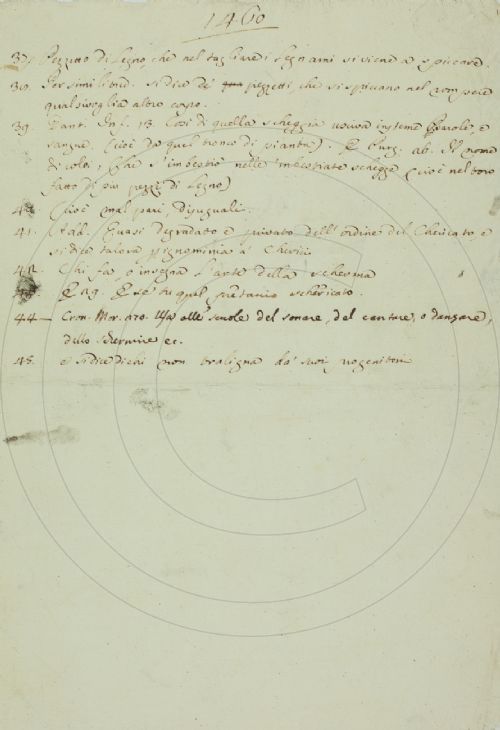 1460
37. Pezzetto di Legno, che nel tagliare i Legnami si viene a spiccare.
38. Per similitud. si dice de' pezzetti che si spiccano nel rompere
qualsivoglia altro corpo.
39. Dant. Inf. 13. Così di quella scheggia usciva insieme Parole, e
sangue. (cioè da quel tronco di pianta). E Purg. 26. Il nome
di colei, Che s'imbestiò nelle 'mbestiate schegge (cioè nel toro
fatto di più pezzi di Legno)
40. (cioè mal pari, disuguali.
41. Add. Quasi degradato e privato dell'ordine del Chericato e
si dice talora p ignominia a' Cherici.
42. Chi fa, o insegna l'arte della scherma
43. E 29. E se' tu quel pretaccio schericato.
44 — Cron. Mor. 270. Usa alle scuole del sonare, del cantare, o danzare,
dello schermire ec.
45. e si dice di chi non traligna da' suoi progenitori